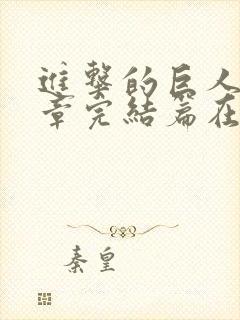 進擊的巨人
章完結篇在
秦皇